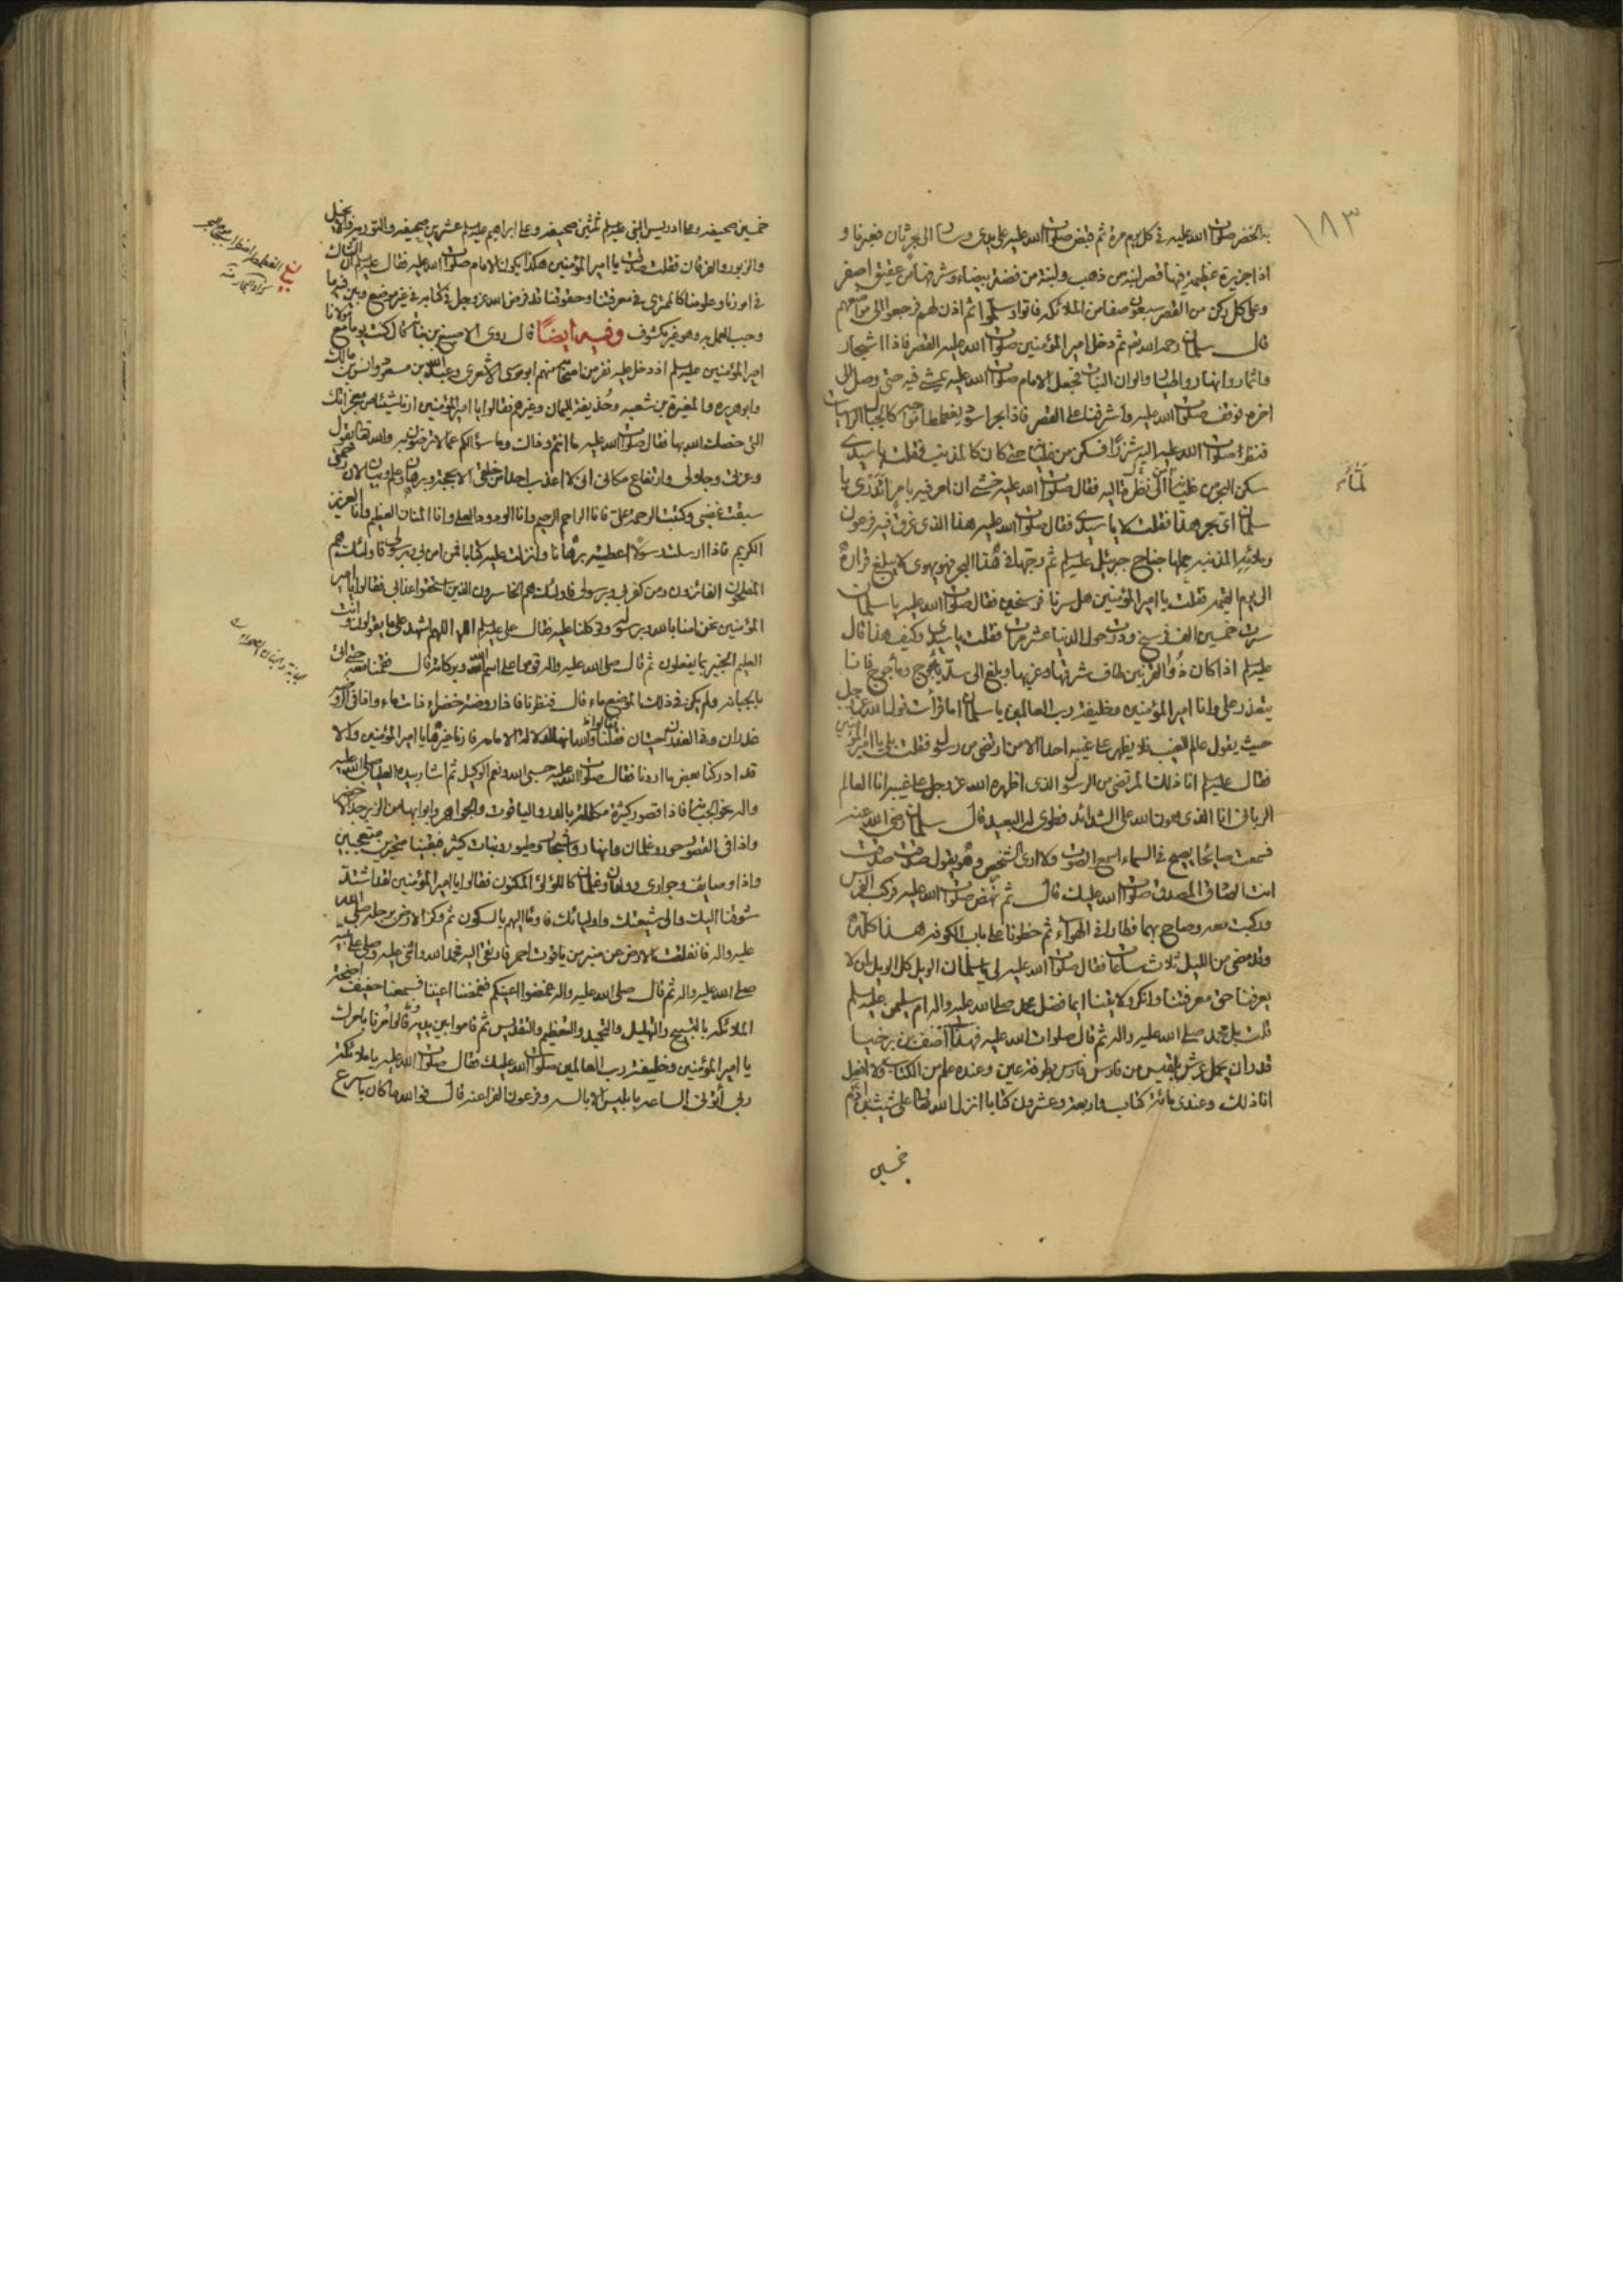 ١٨٣
بالخضر صلوات الله عليه في كل يوم مرة ثم قبض صلوات الله عليه على يدي وسار الى بحر ثان فعبرنا و
اذا جزيرة عظيمة فيها قصر لبنة من ذهب ولبنة من فضة بيضاء وشرفها من عقيق اصفر
وعلى كل ركن من القصر سبعون صفا من الملائكة فاتوا وسلموا ثم اذن لهم فرجعوا الى مواضعهم
قال سلمان رحمه الله ثم دخل امير المؤمنين صلوات الله عليه القصر فاذا اشجار
واثمار وانهار واطيار والوان النبات فجعل الامام صلوات الله عليه يمشي فيه حتى وصل الى
اخره فوقف صلوات الله عليه واشرفنا على القصر فاذا بحر اسود يغطمط امواجه كالجبال الراسيات
فنظر صلوات الله عليه اليه شزرا فسكن من غليانه حتى كان كالمذنب فقلت يا سيدي
سكن البحر من غليانه الى نظرة اليه فقال صلوات الله عليه خشي ان امر فيه بامر اتدري يا
سلمان اي بحر هذا فقلت لا يا سيدي فقال صلوات الله عليه هذا الذي غرق فيه فرعون
وملائه المذنبة حملها جناح جبرئيل عليه السلم ثم زجها في هذا البحر فهو يهوي لا يبلغ قراره
الى يوم القيمة فقلت يا امير المؤمنين هل سرنا فرسخين فقال صلوات الله عليه يا سلمان
سرت خمسين الف فرسخ ودرت حول الدنيا عشر مرات فقلت يا سيدي وكيف هذا قال
عليه السلم اذا كان ذو القرنين طاف شرقها وغربها وبلغ الى سد ياجوج وماجوج فانا
يتعذر علي وانا امير المؤمنين وخليفة رب العالمين يا سلمان اما قرأت قول الله عز وجل
حيث يقول عالم الغيب فلا يظهر على غيبه احدا الا من ارتضى من رسول فقلت بلى يا امير المؤمنين
فقال عليه السلم انا ذلك المرتضى من الرسول الذي اظهره الله عز وجل على غيبه انا العالم
الرباني انا الذي هون الله علي الشدائد فطوى له البعيد قال سلمان رضي الله عنه
فسمعت صايحا يصيح في السماء اسمع الصوت ولا ارى الشخص وهو يقول صدقت صدقت
انت الصادق المصدق صلوات الله عليك قال ثم نهض صلوات الله عليه فركب الفرس
وركبت معه وصاح بهما فطارا في الهواء ثم خطونا على باب الكوفة هذا كله
وقد مضى من الليل ثلاث ساعات فقال صلوات الله عليه لي يا سلمان الويل كل الويل لمن لا
يعرفنا حق معرفتنا وانكر ولايتنا ايما افضل محمد صلى الله عليه واله ام سليمن عليه السلم
قلت بل محمد صلى الله عليه واله ثم قال صلوات الله عليه فهذا آصف بن برخيا
قدر ان يحمل عرش بلقيس من فارس بطرفة عين وعنده علم من الكتاب ولا افعل
انا ذلك وعندي مائة كتاب واربعة وعشرون كتابا انزل الله تعالى على شيث بن آدم
خمسين
خمسين صحيفة وعلى ادريس النبي عليه السلم ثلثين صحيفة وعلى ابراهيم عليه السلم عشرين صحيفة والتورية والانجيل
والزبور والفرقان فقلت صدقت يا امير المؤمنين هكذا يكون الامام صلوات الله عليه فقال عليه السلم ان الشاك
في امورنا وعلومنا كالممتري في معرفتنا وحقوقنا قد فرض الله عز وجل في كتابه في غير موضع وبين فيه ما
وجب العمل به وهو غير مكشوف وفيه أيضاً قال روى الاصبغ بن نباتة قال كنت يوما مع مولانا
امير المؤمنين عليه السلم اذ دخل عليه نفر من اصحابه منهم ابو موسى الاشعري وعبد الله بن مسعود وانس بن مالك
وابو هريرة والمغيرة بن شعبة وحذيفة اليمان وغيرهم فقالوا يا امير المؤمنين ارنا شيئا من معجزاتك
التي خصك الله بها فقال صلوات الله عليه ما انتم وذلك وما سؤالكم عما لا ترضون به والله تعالى يقول
وعزتي وجلالي وارتفاع مكاني اني لا اعذب احدا من خلقي الا بحجة وبرهان وعلم وبيان لان رحمتي
سبقت غضبي وكتبت الرحمة علي فانا الراحم الرحيم وانا الودود العلي وانا المنان العظيم وانا العزيز
الكريم فاذا ارسلت رسولا اعطيته برهانا وانزلت عليه كتابا فمن امن بي وبرسولي فاولئك هم
المفلحون الفائزون ومن كفر بي وبرسولي فاولئك هم الخاسرون الذين استحقوا عذابي فقالوا يا امير
المؤمنين نحن امنا بالله وبرسوله وتوكلنا عليه فقال علي عليه السلم اللهم اشهد على ما يقولون وانت
العليم الخبير بما يفعلون ثم قال صلى الله عليه واله قوموا على اسم الله وبركاته قال فقمنا معه حتى اتى
بالجبانة ولم يكن في ذلك الموضع ماء قال فنظرنا فاذا روضة خضراء ذات ماء واذا في الروضة
غدران وفي الغدران حيتان فقلنا والله انها لدلالة الامامة فارنا غيرها يا امير المؤمنين والا
قد ادركنا بعض ما اردنا فقال صلوات الله عليه حسبي الله ونعم الوكيل ثم اشار بيده العليا صلى الله عليه
واله نحو الجبانة فاذا قصور كثيرة مكللة بالدر والياقوت والجواهر وابوابها من الزبرجد الاخضر
واذا في القصور حور وغلمان وانهار واشجار وطيور ونبات كثير فبقينا متحيرين متعجبين
واذا وصايف وجواري وولدان وغلمان كاللؤلؤ المكنون فقالوا يا امير المؤمنين لقد اشتد
شوقنا اليك والى شيعتك واوليائك فاومأ اليهم بالسكون ثم وكز الارض برجله صلى الله
عليه واله فانفلقت الارض عن منبر من ياقوت احمر فارتقى اليه فحمد الله واثنى عليه وصلى على نبيه
صلى الله عليه واله ثم قال صلى الله عليه واله غمضوا اعينكم فغمضنا اعيننا فسمعنا حفيف اجنحة
الملائكة بالتسبيح والتهليل والتحميد والتعظيم والتقديس ثم قاموا بين يديه وقالوا مرنا بامرك
يا امير المؤمنين وخليفة رب العالمين صلوات الله عليك فقال صلوات الله عليه يا ملائكة
ربي أتوني الساعة بابليس الابالسة وفرعون الفراعنة قال فوالله ما كان باسرع